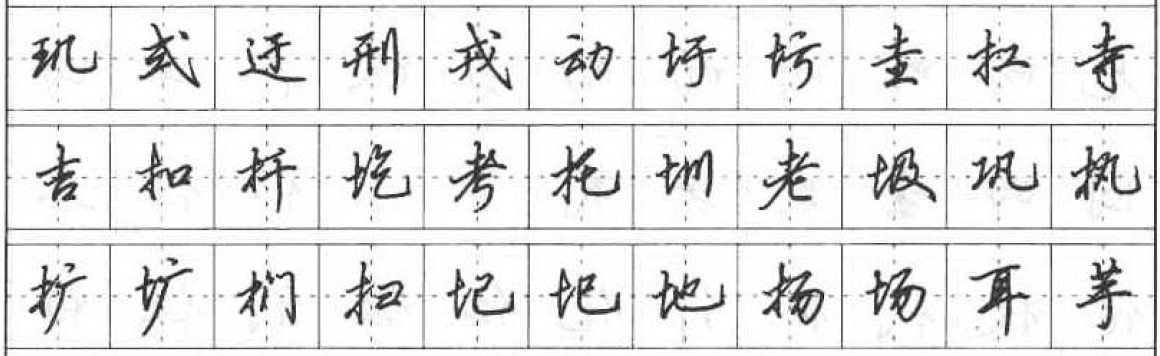 玑式迂刑戎动圩圬圭扛寺
吉扣扦圪考托圳老圾巩执
扩圹扪扫圮圯地扬场耳芋